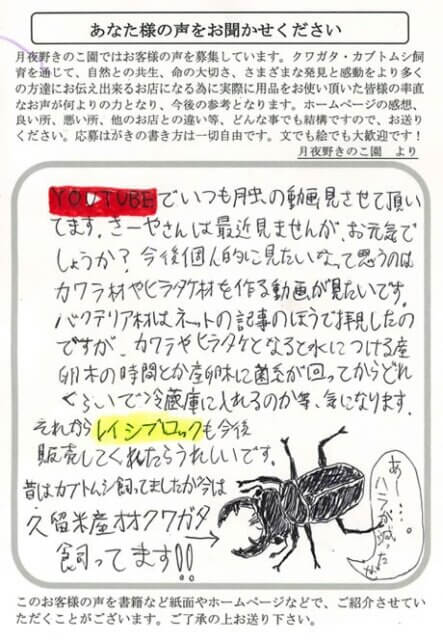 あなた様の声をお聞かせください
月夜野きのこ園ではお客様の声を募集しています。クワガタ・カブトムシ飼
育を通じて、自然との共生、命の大切さ、さまざまな発見と感動をより多く
の方達にお伝え出来るお店になる為に実際に用品をお使い頂いた皆様の率直
なお声が何よりの力となり、今後の参考となります。ホームページの感想、
良い所、悪い所、他のお店との違い等、どんな事でも結構ですので、お送り
ください。応募はがきの書き方は一切自由です。文でも絵でも大歓迎です！
月夜野きのこ園 より
YOUTUBEでいつも月虫の動画見させて頂い
てます。きーやさんは最近見ませんが、お元気で
しょうか？今後個人的に見たいなって思うのは
カワラ材やヒラタケ材を作る動画が見たいです。
バクテリア材はネットの記事のほうで拝見したの
ですが、カワラやヒラタケとなると水につける産
卵木の時間とか産卵床に菌糸が回ってからどれ
くらいで冷蔵庫に入れるのか等、気になります。
それから レイシブロックも今後
販売してくれたらうれしいです。
昔はカブトムシ飼ってましたが今は
久留米産オオクワガタ
飼ってます!!
あー…。
ハラが減った